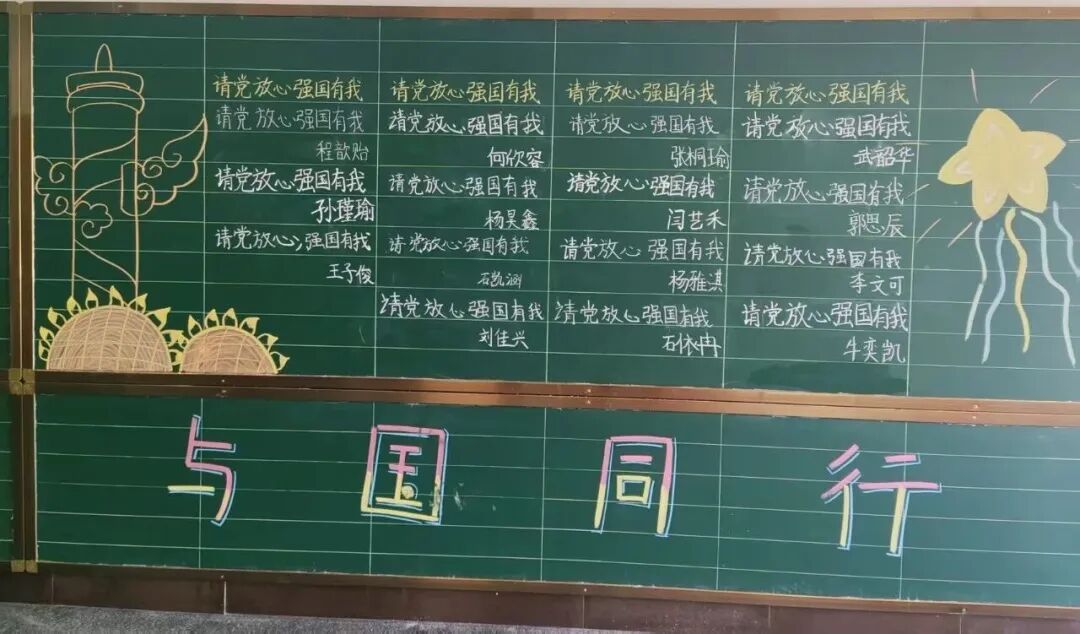 请党放心强国有我 请党放心强国有我 请党放心强国有我 请党放心强国有我
请党放心强国有我 请党放心强国有我 请党放心强国有我 请党放心强国有我
程歆贻 何欣容 张桐瑜 武韶华
请党放心强国有我 请党放心强国有我 请党放心强国有我 请党放心强国有我
孙瑾瑜 杨昊鑫 闫艺禾 郭思辰
请党放心,强国有我 请党放心强国有我 请党放心强国有我 请党放心强国有我
王子俊 石凯涵 杨雅淇 李文可
请党放心强国有我 请党放心强国有我 请党放心强国有我
刘佳兴 石依冉 牛奕凯
与国同行